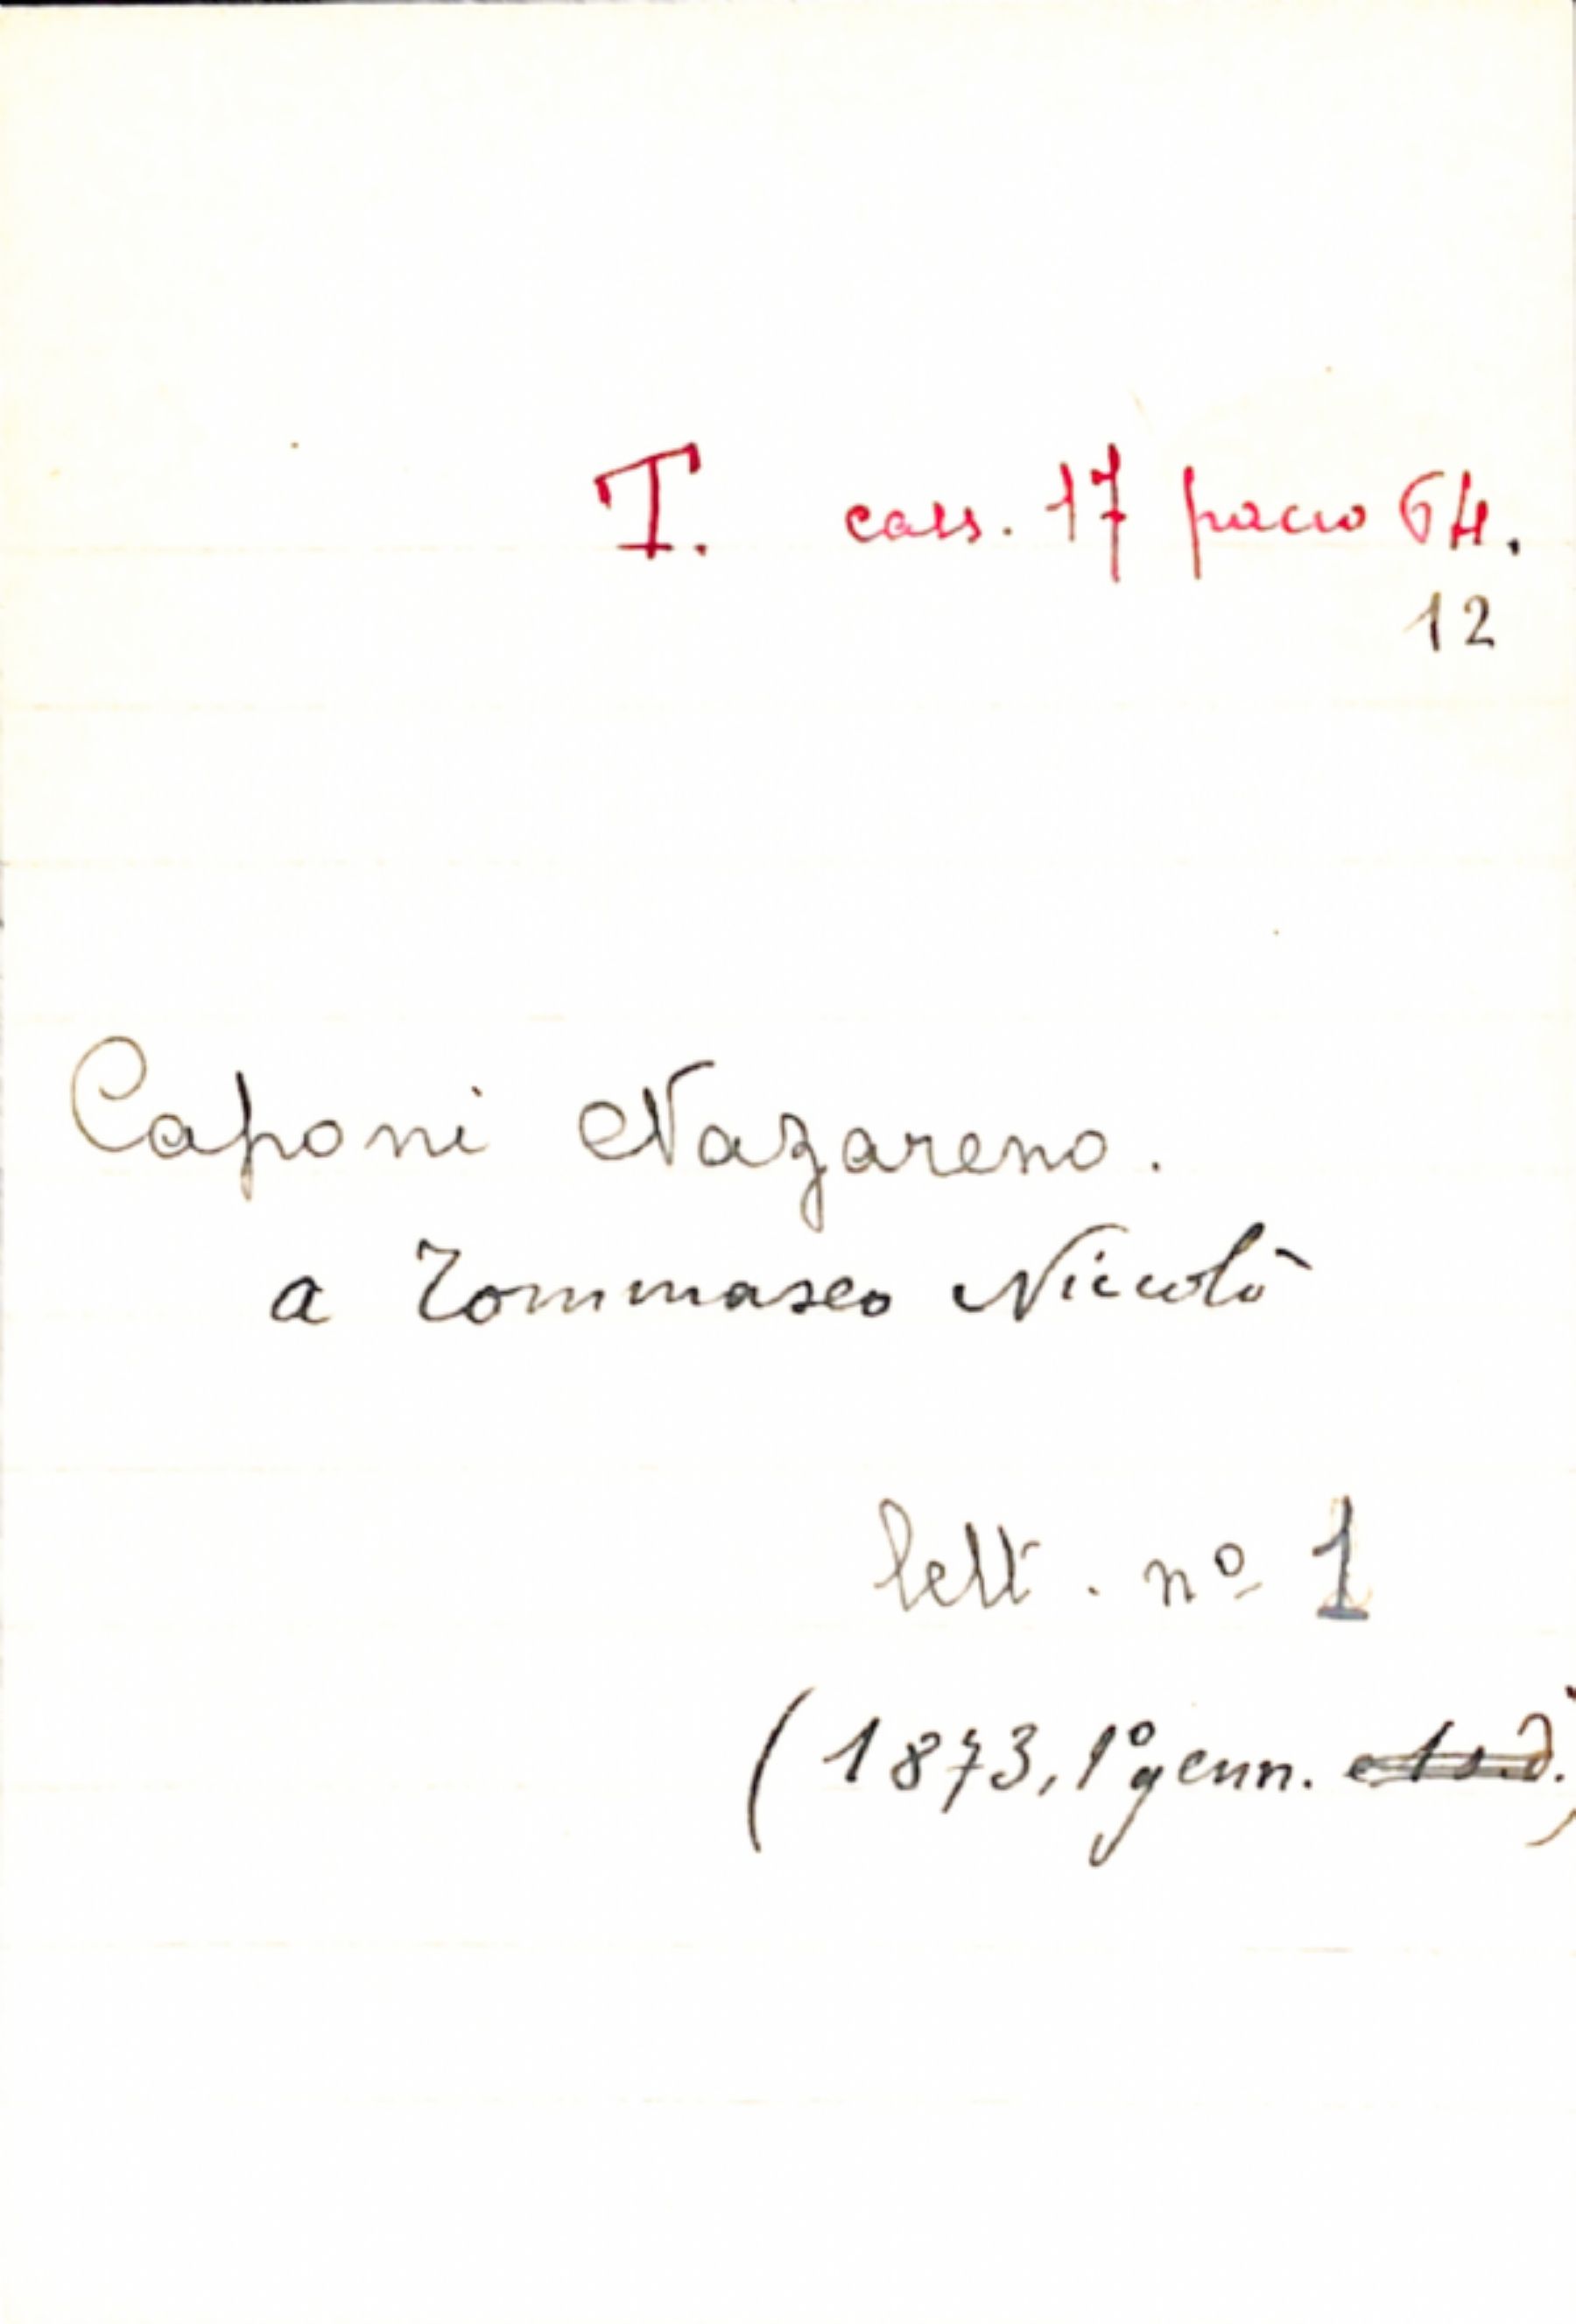 T. cass. 17 pacco 64.
12
Caponi Nazareno.
a Tommaseo Niccolò
lett. nº 1
(1873, 1º genn. e 1 s.d.)